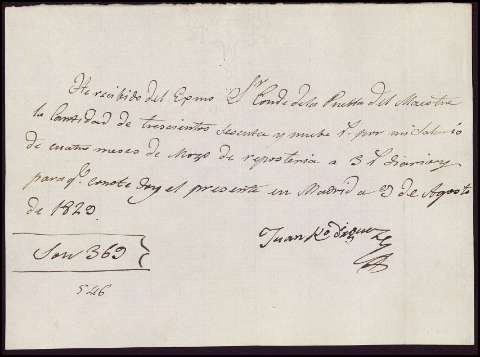 He recibido del Exmo Sr Conde dela Puebla del Maestre
la Cantidad de trescientos sesenta y nuebe rs. por mi Salario
de cuatro meses de Mozo de reposteria a 3 rs diarios y
para qe. conste doy el presente en Madrid a 9 de Agosto
de 1829.
Son 369
Juan Rodriguez
546